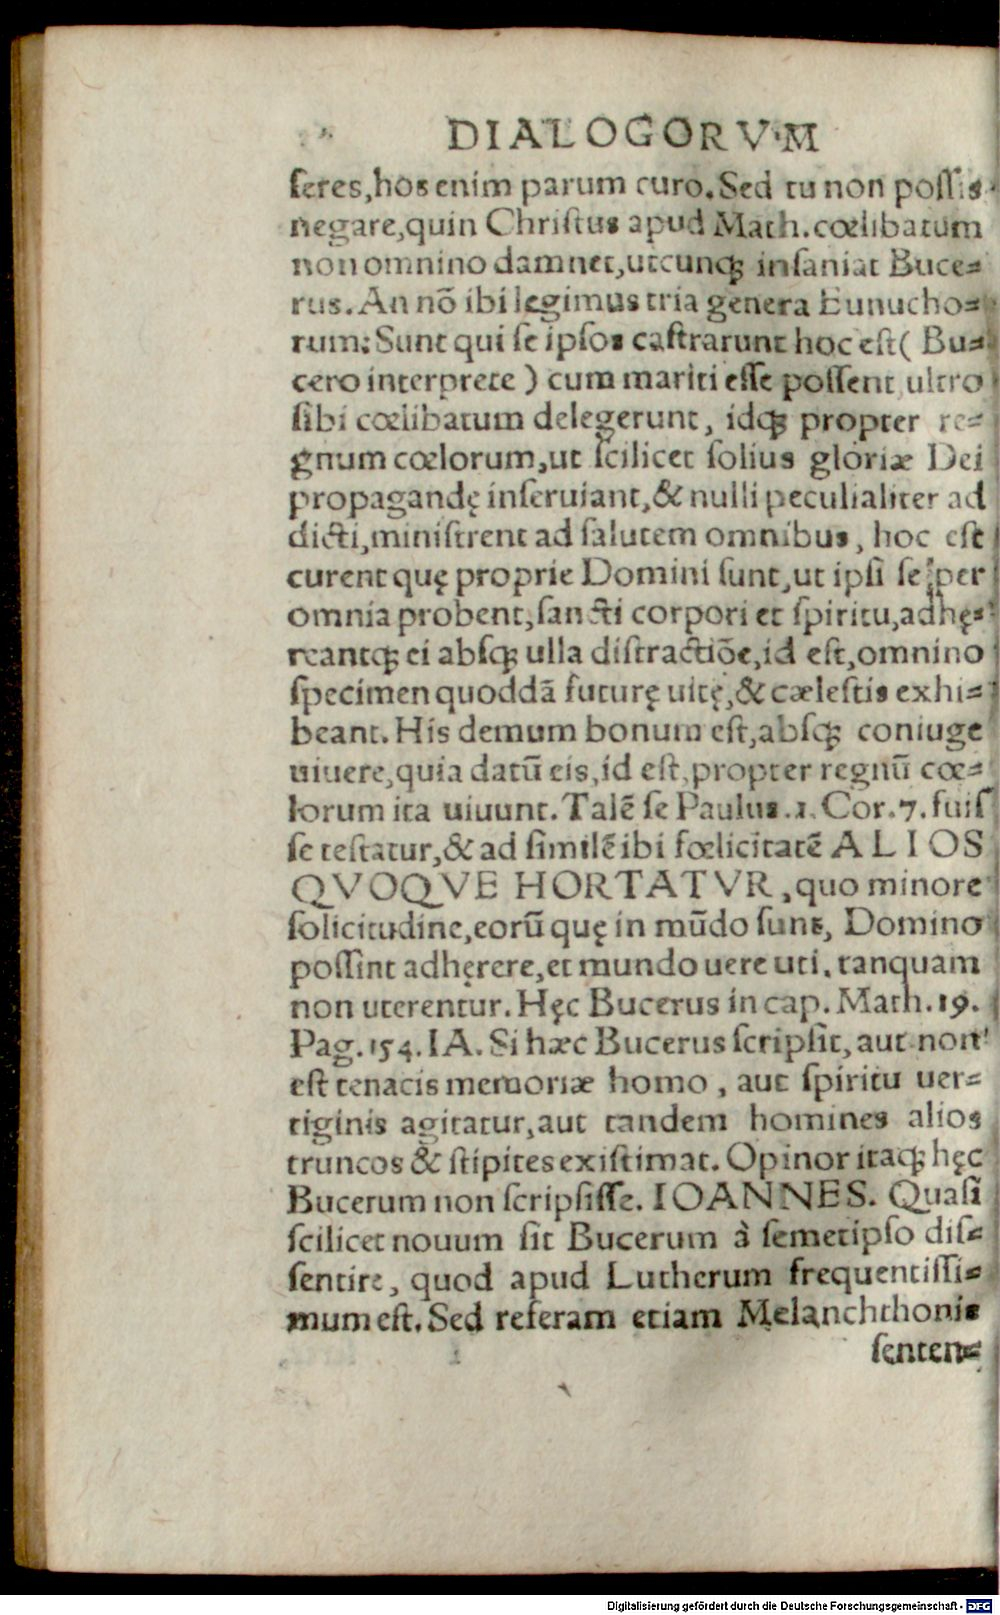 DIALOGORVM
ſeres,hos enim parum curo.Sed tu non poſſis
negare,quin Chriſtus apud Math.cœlibatum
non omnino damnet,utcunqꝫ inſaniat Buce⸗
rus.An nõ ibi legimus tria genera Eunucho⸗
rum:Sunt qui ſe ipſos caſtrarunt hoc eſt( Bu⸗
cero interprete ) cum mariti eſſe poſſent ultro
ſibi cœlibatum delegerunt, idqꝫ propter re⸗
gnum cœlorum,ut ſcilicet ſolius gloriæ Dei
propagandę inſeruiant,& nulli peculialiter ad
dicti,miniſtrent ad ſalutem omnibus, hoc eſt
curent quę proprie Domini ſunt,ut ipſi ſe per
omnia probent,ſancti corpori et ſpiritu,adhę⸗
reantqꝫ ei abſqꝫ ulla diſtractiõe,id eſt,omnino
ſpecimen quoddã futurę uitę,& cæleſtis exhi⸗
beant. His demum bonum eſt,abſqꝫ coniuge
uiuere,quia datũ eis,id eſt,propter regnũ cœ⸗
lorum ita uiuunt. Talẽ ſe Paulus.1.Cor.7.fuiſ
ſe teſtatur,& ad ſimilẽ ibi fœlicitatẽ ALIOS
QVOQVE HORTATVR,quo minore
ſolicitudine,eorũ quę in mũdo ſunt, Domino
poſſint adhęrere,et mundo uere uti, tanquam
non uterentur. Hęc Bucerus in cap. Math.19.
Pag.154.IA. Si hæc Bucerus ſcripſit, aut non
eſt tenacis memoriæ homo, aut ſpiritu uer⸗
tiginis agitatur,aut tandem homines alios
truncos & ſtipites exiſtimat. Opinor itaqꝫ hęc
Bucerum non ſcripſiſſe. IOANNES. Quaſi
ſcilicet nouum ſit Bucerum à ſemetipſo diſ⸗
ſentire, quod apud Lutherum frequentiſſi⸗
mum eſt. Sed referam etiam Melanchthonis
ſenten⸗
Digitalisierung gefördert durch die Deutsche Forschungsgemeinschaft - DFG